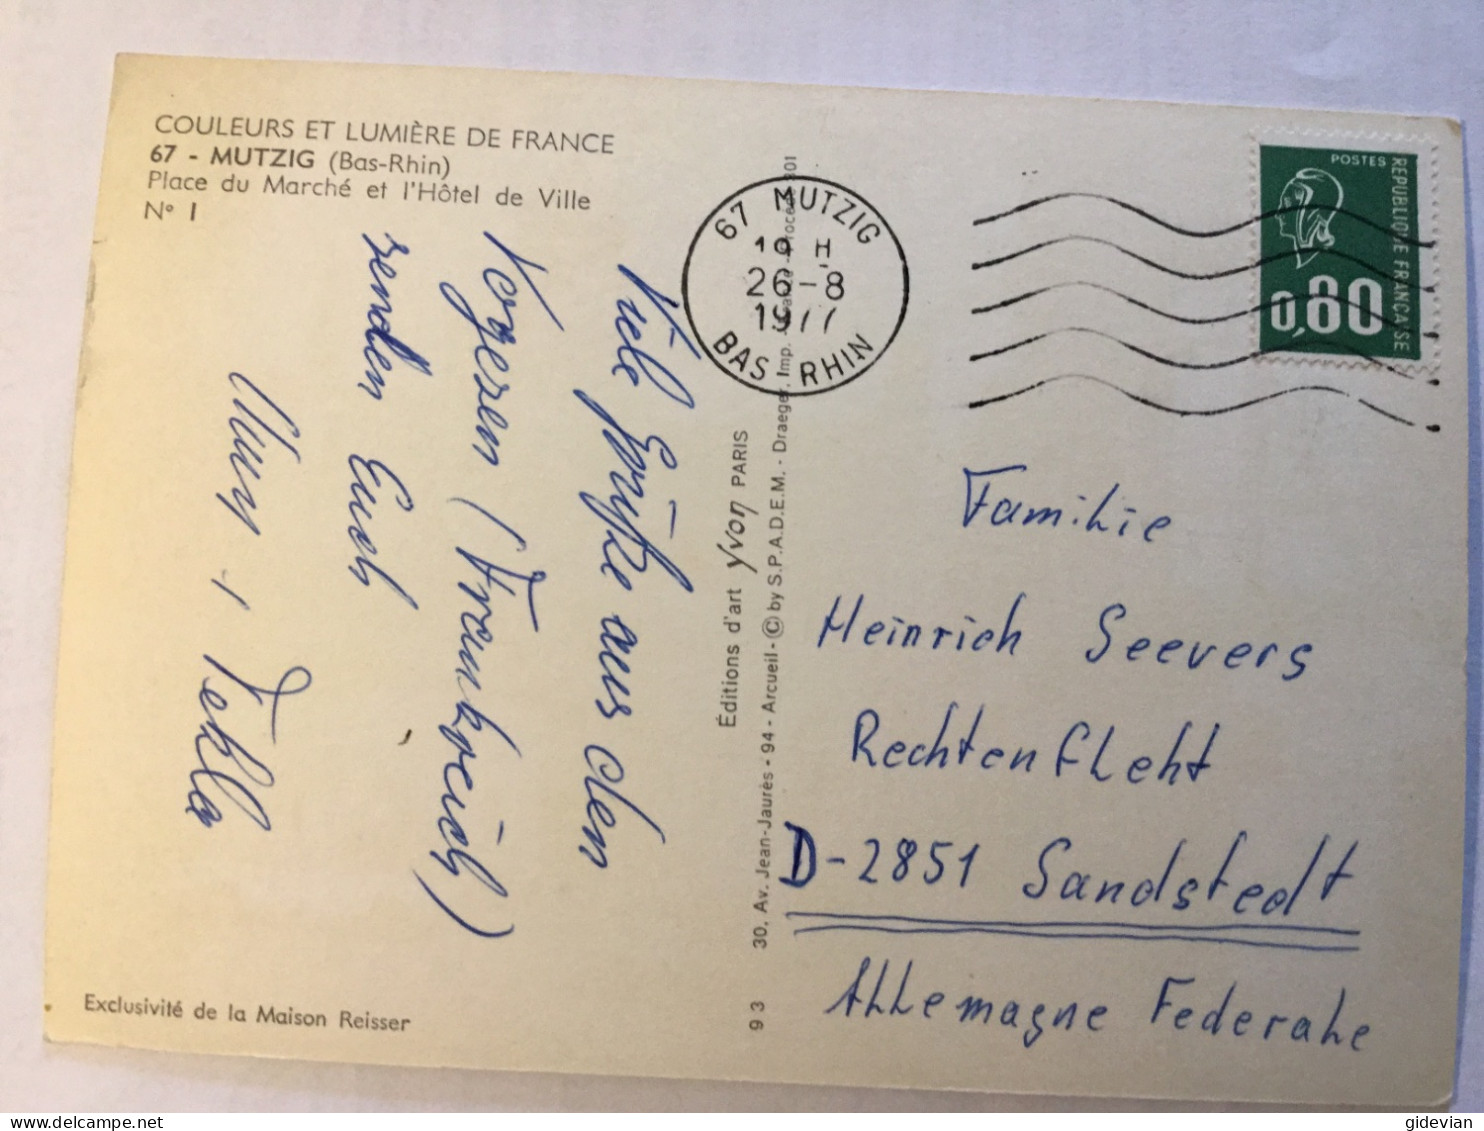 COULEURS ET LUMIÈRE DE FRANCE
67 - MUTZIG (Bas-Rhin)
Place du Marché et l'Hôtel de Ville
N° 1
Viele Grüße aus den
Vogesen (Frankreich)
senden Euch
+ Tekla
Exclusivité de la Maison Reisser
Éditions d'art yvon PARIS
30, Av. Jean-Jaurès - 94 - Arcueil - © by S.P.A.D.E.M. - Draeger, Imp.
93
67 MUTZIG
19 H
26-8
1977
BAS RHIN
POSTES
REPUBLIQUE FRANÇAISE
0,80
Familie
Heinrich Seevers
Rechtenfleht
D-2851 Sandstedt
Allemagne Federale
gidevian